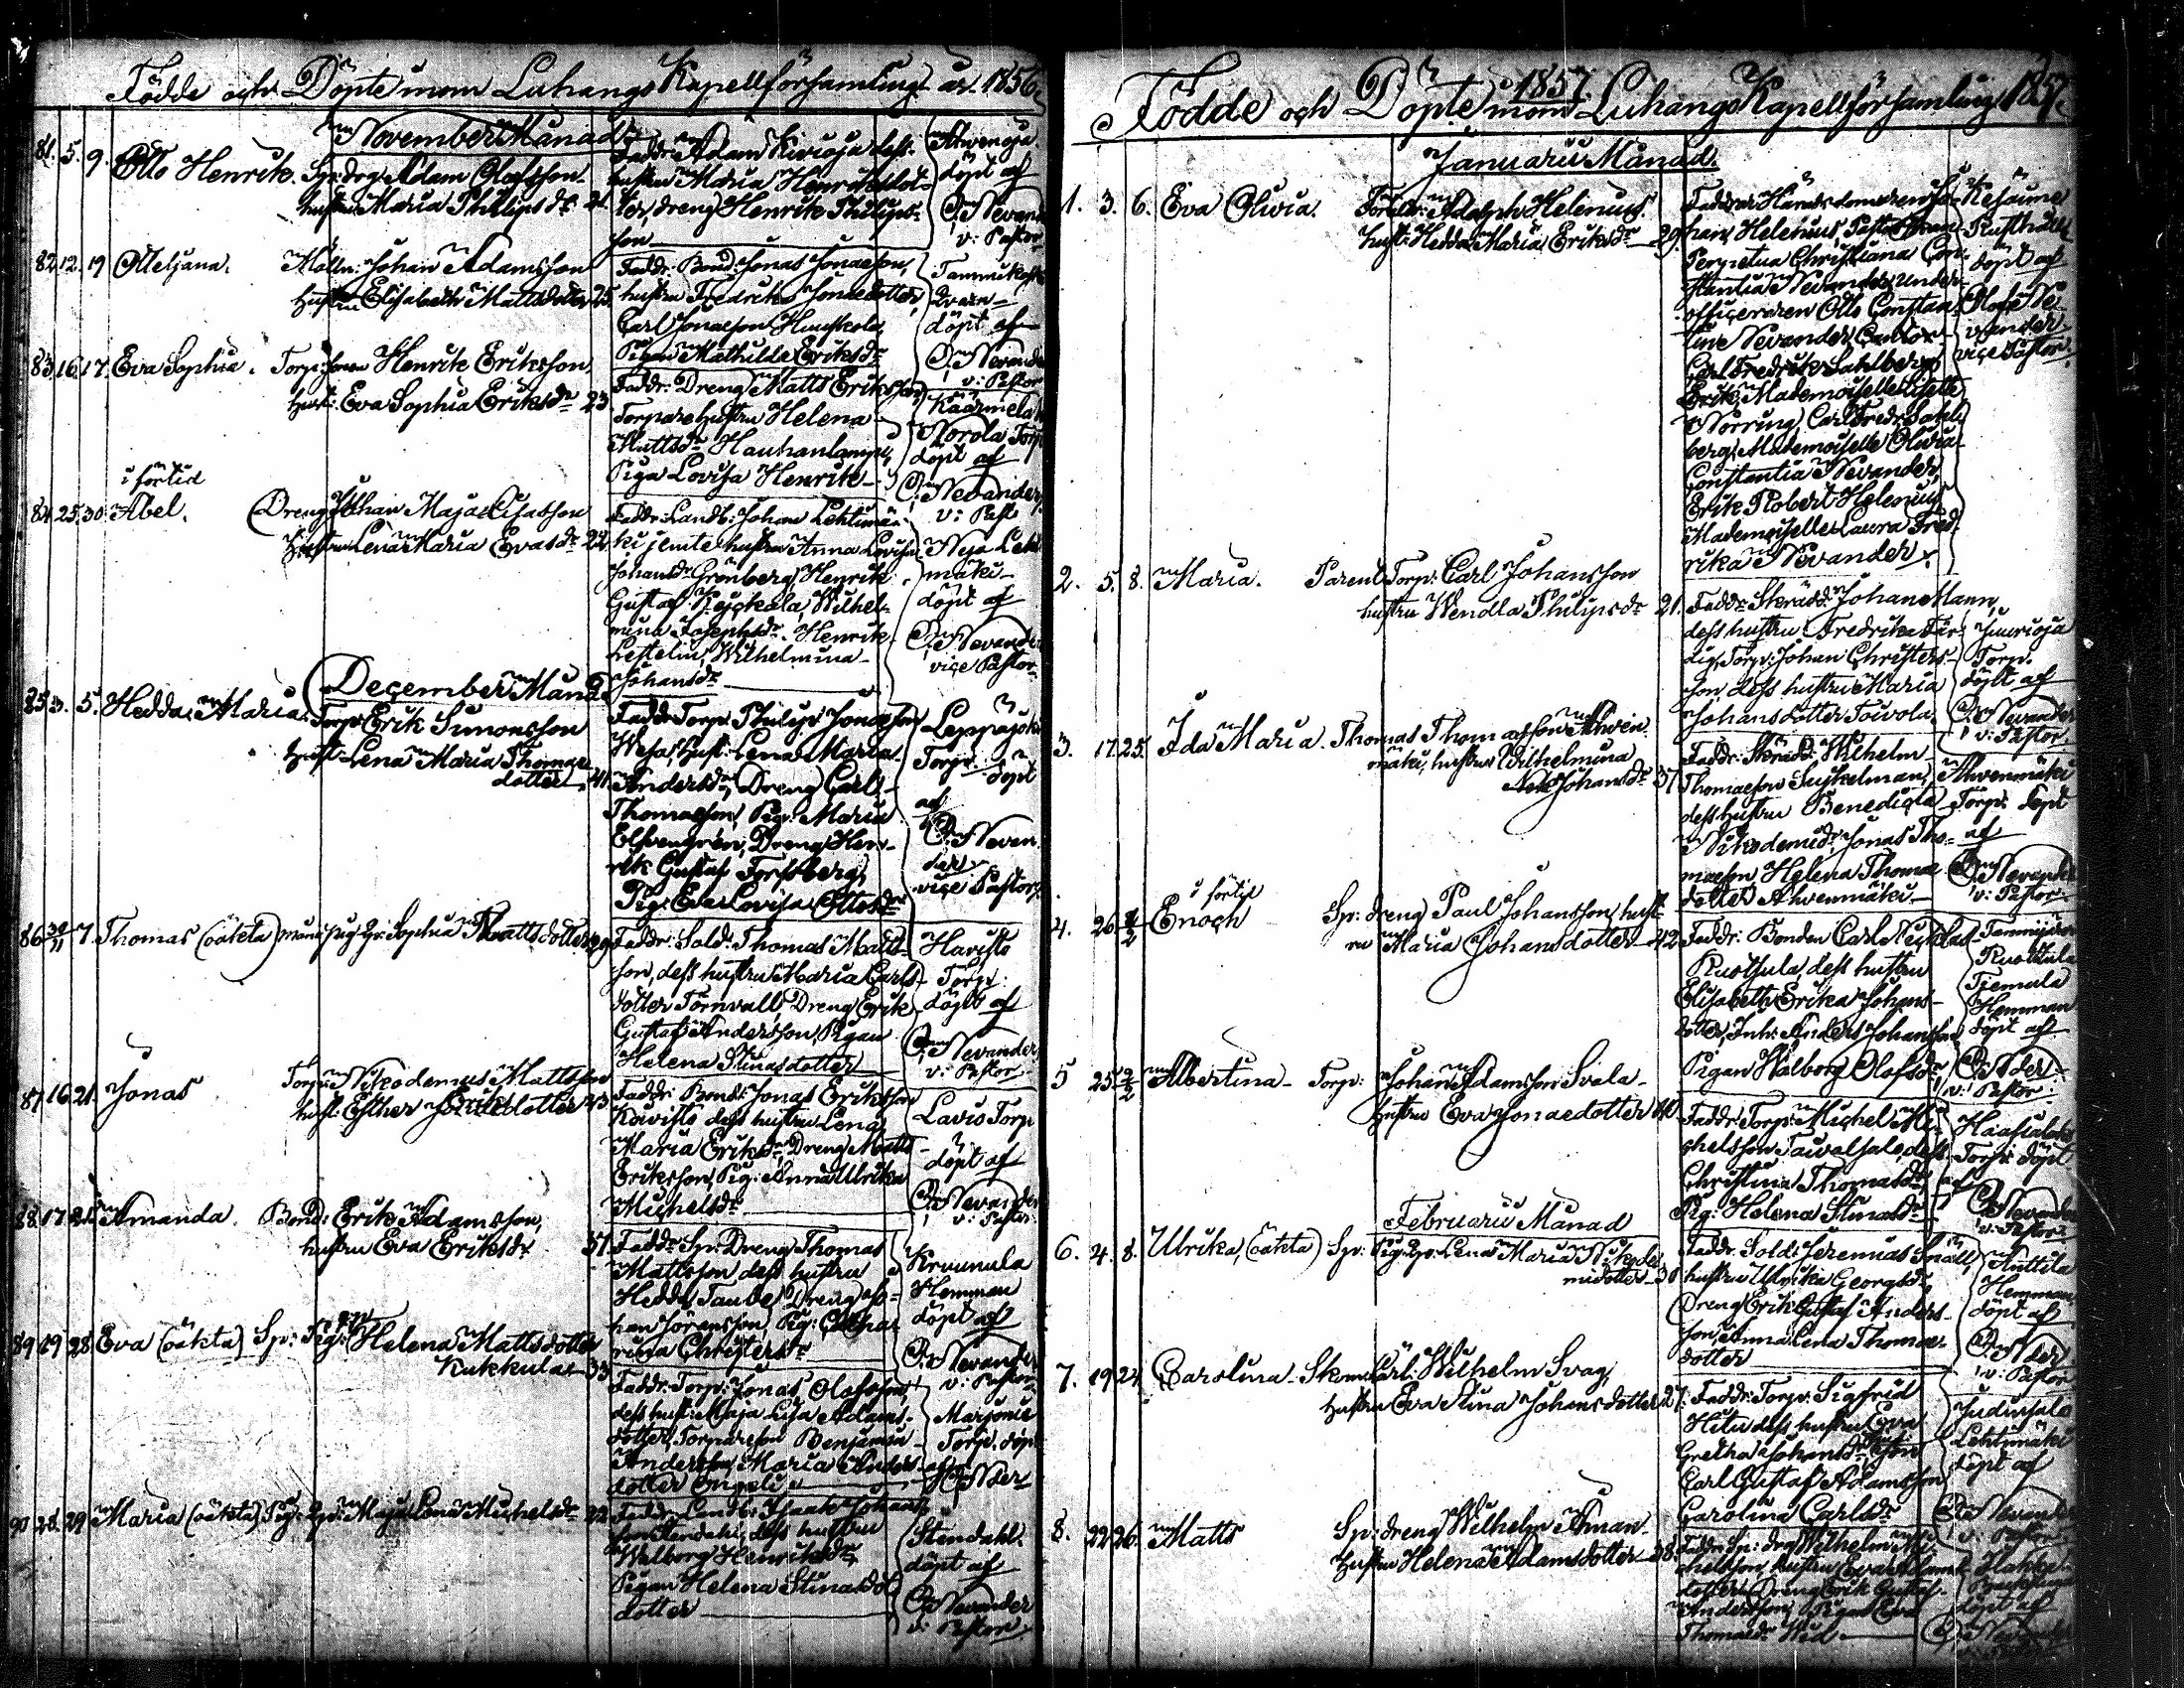 Födde och Döpte inom Luhango Kapellförsamling år 1856.
November Månad
81. 5. 9. Otto Henrik. Sp: drg: Adam Olofsson
hustru Maria Philips dr 21.
Faddr: Adam Kivioja dess
hustru Maria Henriksdot-
ter, dreng Henrik Philips-
son
Ahvenoja
döpt af
O. Nevander
v: Pastor
82. 12. 19 Meljana. Mölln: Johan Adamsson
hustru Elisabeth Mattsdotter 25.
Faddr: Bond: Jonas Jonaeson,
hustru Fredrika Jonaedotter,
Carl Jonaeson
Pigan Mathilda Eriksdr
döpt af
O. Nevander
v: Pastor
83. 16. 17. Eva Sophia. Torp: Henrik Eriksson
hust: Eva Sophia Eriksdr 23
Faddr: Dreng Matts Eriksson
Torpare hustru Helena
Mattsdr Hauhanlampi,
Piga Lovisa Henrik-
Norola Torp
döpt af
O. Nevander
v: Past
i förtid
84. 25. 30. Abel. Dreng Johan Majalisasson
hustru Lena Maria Evasdr 22
Faddr: Landb: Johan Lehtimä-
ki jemte hustru Anna Lovisa
Johansdr Grönberg, Henrik
Gustaf Wilhel-
mina Josephsdr. Henrik
Lestelin, Wilhelmina
Johansdr
Neja Leht
mäki
döpt af
O. Nevander
vice Pastor
December Månad
85. 3. 5. Hedda Maria. Torp: Erik Simonsson
hust: Lena Maria Thomae
dotter 41.
Faddr: Torp: Philip Jonaeson
Wesa, hust: Lena Maria
Andersdr, Dreng Carl
Thomaeson, Pig: Maria
Elfvengren, Dreng Hen-
rik Gustaf Forssberg,
Pig: Eva Lovisa Ottosdr
Leppäjoki
Torp: döpt
af
O. Nevan
der
vice Pastor
86. 30/11 7. Thomas (oäkta) Sophia Mattsdotter 29
Faddr: Sold: Thomas Matts-
son, dess hustru Maria Carls-
dotter Törnvall, Dreng Erik
Gustaf Andersson, Pigan
Helena Stinasdotter
Havisto
Torp:
döpt af
O. Nevander
v: Pastor
87. 16. 21. Jonas Torp: Nikodemus Mattsson
hust: Esther 43
Faddr: Bond: Jonas Eriksson
Koivisto dess hustru Lena
Maria Eriksdr, Dreng Matts
Eriksson, Pig: Anna Ulrika
Michelsdr
Lavis Torp
döpt af
O. Nevander
v: Pastor
88. 17. 21. Amanda. Bond: Erik Adamsson,
hustru Eva Eriksdr 37.
Faddr: Sp: Dreng Thomas
Mattsson dess hustru
Hedda Taube, Dreng Jo-
han Jörensson, Pig: Catha-
rina Christersdr
Krounula
Hemman
döpt af
O. Nevander
v: Pastor
89. 19. 28. Eva (oäkta) Sp: Pig: Helena Mattsdotter
Kukkula 33
Faddr: Torp: Jonas Olofsson,
dess hust: Maja Lisa Adams-
dotter, Torpareson Benjamin
Andersson, Maria Anders-
dotter Ongeli
Marjonie
Torp: döpt
af
O. Nder
90. 28. 29. Maria (oäkta) Pig: Maja Lena Michelsdr 22
Faddr: Landb: Isaak Johans
son Stendahl, dess hustru
Walborg Henriksdr,
Pigan Helena Stinas
dotter
Stendahl
döpt af
O. Nevander
v: Pastor
1857.
Födde och Döpte inom Luhango Kapellförsamling 1857.
Januarii Månad.
1. 3. 6. Eva Olivia. Adolph Helenius.
hust: Hedda Maria Eriksdr 29.
Jo-
han Helenius,
Perpetua Christiana Con-
stantia Nevander, Under-
officeraren Otto Constan-
tin Nevander, Cantor
Carl Fredrik Sahlberg
Erik, Mademoiselle Lisette
Norring, Carl Fredr: Sahl-
berg, Mademoiselle Olivia
Constantia Nevander,
Erik Robert Helenius
Mademoiselle Laura Fred-
rika Nevander.
Rusthåll
döpt af
Olof Ne-
vander
vice Pastor.
2. 5. 8. Maria. Torp: Carl Johansson
hustru Wendla Philipsdr 21.
Faddr: Skrädd: Johan Mann,
dess hustru Fredrika Fär-
dig, Torp: Johan Christers-
son, dess hustru Maria
Johansdotter Toivola.
Torp.
döpt af
O. Nevander
v: Pastor
3. 17. 25. Ida Maria. Thomas Thomaeson Ahven
mäki, hustru Wilhelmina
Johansdr 37
Faddr: Skrädd: Wilhelm
Thomaeson Suikelman,
dess hustru Benedicta
Nikodemidr, Jonas Tho-
maeson, Helena Thomae
dotter Ahvenmäki
Ahvenmäki
Torp: döpt
af
O. Nevander
v: Pastor
i förtid
4. 26. 1/2 Enoch Sp: dreng Paul Johansson, hust-
ru Maria Johansdotter 42
Faddr: Bonden Carl
Rusthula, dess hustru
Elisabeth Erika Johans-
dotter, Inh: Anders Johansson
Pigan Walborg Olofsdr
Hemman
döpt af
O. Nder
v: Pastor
5 25. 2/2 Albertina Torp: Johan Adamsson Svala
hustru Eva Jonaedotter 40
Faddr: Torp: Michel Mi-
chelsson Taivalsalo, dess
Christina Thomasdr
Pig: Helena Stinasdr
Torp: döpt
af
O. Nevander
v: Pastor
Februarii Månad
6. 4. 8. Ulrika, (oäkta) Sp: Pig: Lena Maria Nikode
midotter 30
Faddr: Sold: Jeremias Snäll,
hustru Ulrika Georgsdr,
Dreng Erik Gustaf Anders-
son, Anna Lena Thomae-
dotter
Anttila
Hemman
döpt af
O. Nder
v: Pastor
7. 19. 24. Carolina Skom: Carl Wilhelm Svag,
hustru Eva Stina Johansdotter 27.
Faddr: Torp: Sigfrid
dess hustru Eva
Gretha Johansdr
Carl Gustaf Adamsson
Carolina Carlsdr
Judinsalo
Lehtimäki
döpt af
O. Nevander
v: Pastor
8. 22. 26. Matts Sp: dreng Wilhelm Åman
hustru Helena Adamsdotter 38.
Faddr: Sp: drg Wilhelm Mi-
chelsson, hustru Eva Adams-
dotter, Dreng Erik Gustaf
Andersson, Pigan Eva
Thomasdr
döpt af
O. Nevander